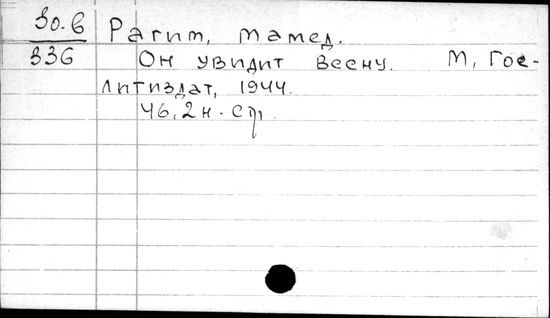 30.6 Рагим, Мамед.
336 Он увидит весну. М, Гос-
литиздат, 1944.
46, 2 н. стр.